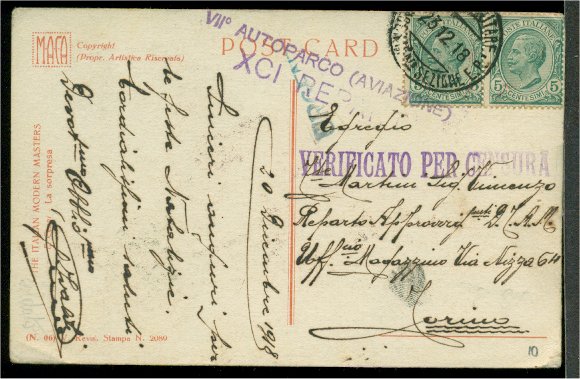 MACA
Copyright
(Propr. Artistica Riservata)
POST CARD
VIIº AUTOPARCO (AVIAZIONE)
XCI REP
23.12.18
POSTE ITALIANE
5 CENTESIMI 5
VERIFICATO PER CENSURA
20 Dicembre 1918
Sinceri auguri per
le feste Natalizie.
Cordialissimi saluti
Egregio
Martini Sig. Vincenzo
Reparto Approvvig
Uff. Magazzino Via Nizza 64
Torino
THE ITALIAN MODERN MASTERS
La sorpresa
Revis. Stampa N. 2080
10